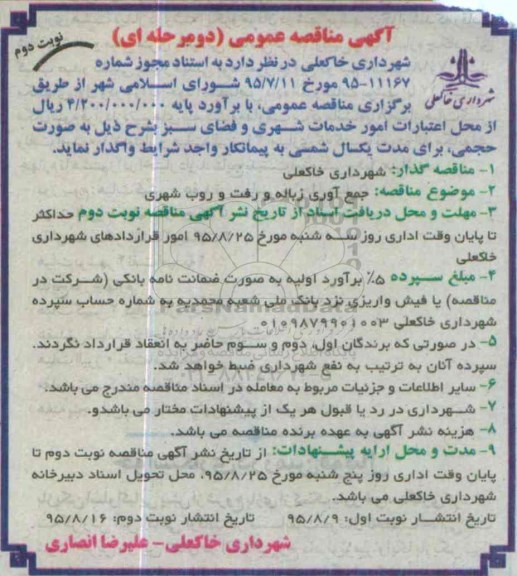 آگهی مناقصه عمومی (دومرحله ای)
نوبت دوم
شهرداری خاکعلی
شهرداری خاکعلی در نظر دارد به استناد مجوز شماره
۹۵-۱۱۱۶۷ مورخ ۹۵/۷/۱۱ شورای اسلامی شهر از طریق
برگزاری مناقصه عمومی، با برآورد پایه ۴/۲۰۰/۰۰۰/۰۰۰ ریال
از محل اعتبارات امور خدمات شهری و فضای سبز بشرح ذیل به صورت
حجمی، برای مدت یکسال شمسی به پیمانکار واجد شرایط واگذار نماید.
۱- مناقصه گذار: شهرداری خاکعلی
۲- موضوع مناقصه: جمع آوری زباله و رفت و روب شهری
۳- مهلت و محل دریافت اسناد از تاریخ نشر آگهی مناقصه نوبت دوم حداکثر
تا پایان وقت اداری روز سه شنبه مورخ ۹۵/۸/۲۵ امور قراردادهای شهرداری
خاکعلی
۴- مبلغ سپرده ۵٪ برآورد اولیه به صورت ضمانت نامه بانکی (شرکت در
مناقصه) یا فیش واریزی نزد بانک ملی شعبه محمدیه به شماره حساب سپرده
شهرداری خاکعلی ۰۱۰۹۸۷۹۹۰۱۰۰۳
۵- در صورتی که برندگان اول، دوم و سوم حاضر به انعقاد قرارداد نگردند.
سپرده آنان به ترتیب به نفع شهرداری ضبط خواهد شد.
۶- سایر اطلاعات و جزئیات مربوط به معامله در اسناد مناقصه مندرج می باشد.
۷- شهرداری در رد یا قبول هر یک از پیشنهادات مختار می باشدو.
۸- هزینه نشر آگهی به عهده برنده مناقصه می باشد.
۹- مدت و محل ارایه پیشنهادات: از تاریخ نشر آگهی مناقصه نوبت دوم تا
پایان وقت اداری روز پنج شنبه مورخ ۹۵/۸/۲۵، محل تحویل اسناد دبیرخانه
شهرداری خاکعلی می باشد.
تاریخ انتشار نوبت اول: ۹۵/۸/۹ تاریخ انتشار نوبت دوم: ۹۵/۸/۱۶
شهرداری خاکعلی- علیرضا انصاری